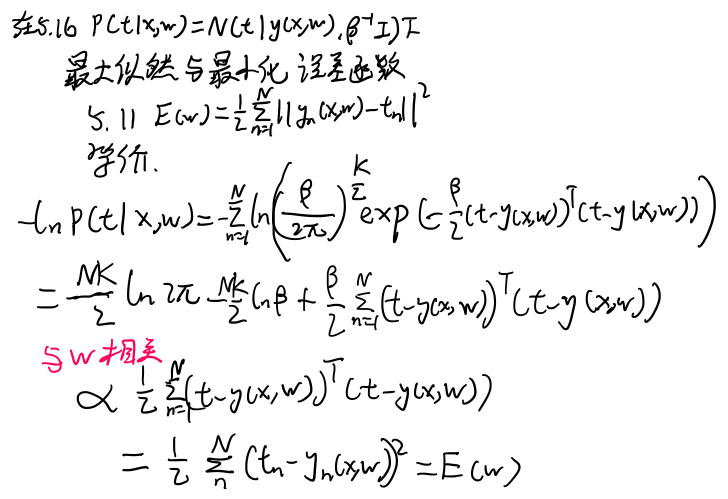 在5.16 P(t|x,w)=N(t|y(x,w),β⁻¹I)下
最大似然与最小化误差函数
5.11 E(w)=½∑ₙ₌₁ᴺ||yₙ(x,w)-tₙ||²
等价.
-ln P(t|x,w)=-∑ₙ₌₁ᴺ ln((β/2π)^(K/2) exp(-β/2(t-y(x,w))ᵀ(t-y(x,w))))
= NK/2 ln 2π - NK/2 ln β + β/2 ∑ₙ₌₁ᴺ(t-y(x,w))ᵀ(t-y(x,w))
与w相关
∝ ½∑ₙ₌₁ᴺ(t-y(x,w))ᵀ(t-y(x,w))
= ½ ∑ₙᴺ (tₙ-yₙ(x,w))² = E(w)